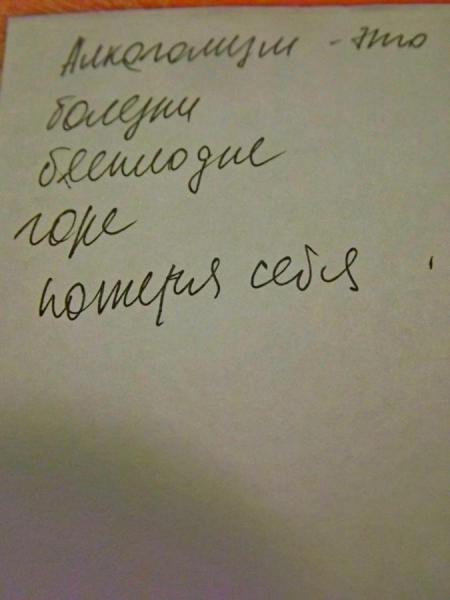 Алкоголизм - это
болезни
бесплодие
горе
потеря себя